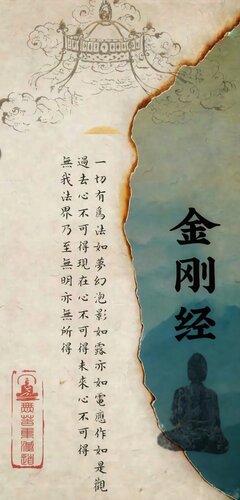 金刚经
一切有為法如夢幻泡影如露亦如電應作如是觀
過去心不可得現在心不可得未來心不可得
無我法界乃至無明亦無所得